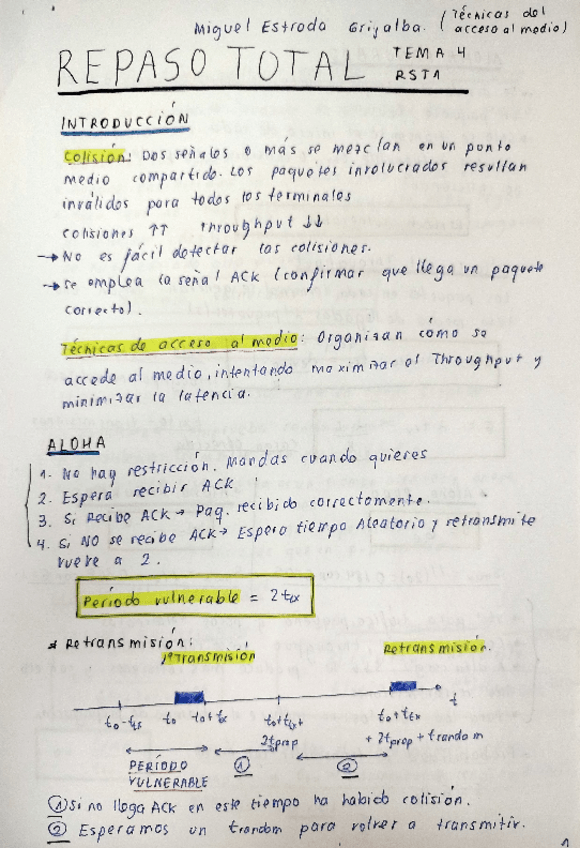 Miguel Estrada Grijalba. (Técnicas del
acceso al medio)
REPASO TOTAL TEMA 4
RSTA
INTRODUCCIÓN
Colisión: Dos señales o más se mezclan en un punto
medio compartido. Los paquetes involucrados resultan
inválidos para todos los terminales
colisiones ↑↑ throughput ↓↓
→ No es fácil detectar las colisiones.
→ Se emplea la señal ACK (confirmar que llega un paquete
correcto).
Técnicas de acceso al medio: Organizan cómo se
accede al medio, intentando maximizar el Throughput y
minimizar la latencia.
ALOHA
1. No hay restricción. Mandas cuando quieres
2. Espera recibir ACK
3. Si Recibe ACK → Paq. recibido correctamente.
4. Si NO se recibe ACK → Espero tiempo Aleatorio y retransmite
vuelve a 2.
Período vulnerable = 2ttx
Retransmisión:
1ª Transmisión Retransmisión.
t
to - ttx to to + ttx to + ttx + 2tprop to + ttx + 2tprop + trandom
PERÍODO VULNERABLE ① ②
① Si no llega ACK en este tiempo ha habido colisión.
② Esperamos un trandom para volver a transmitir.
1